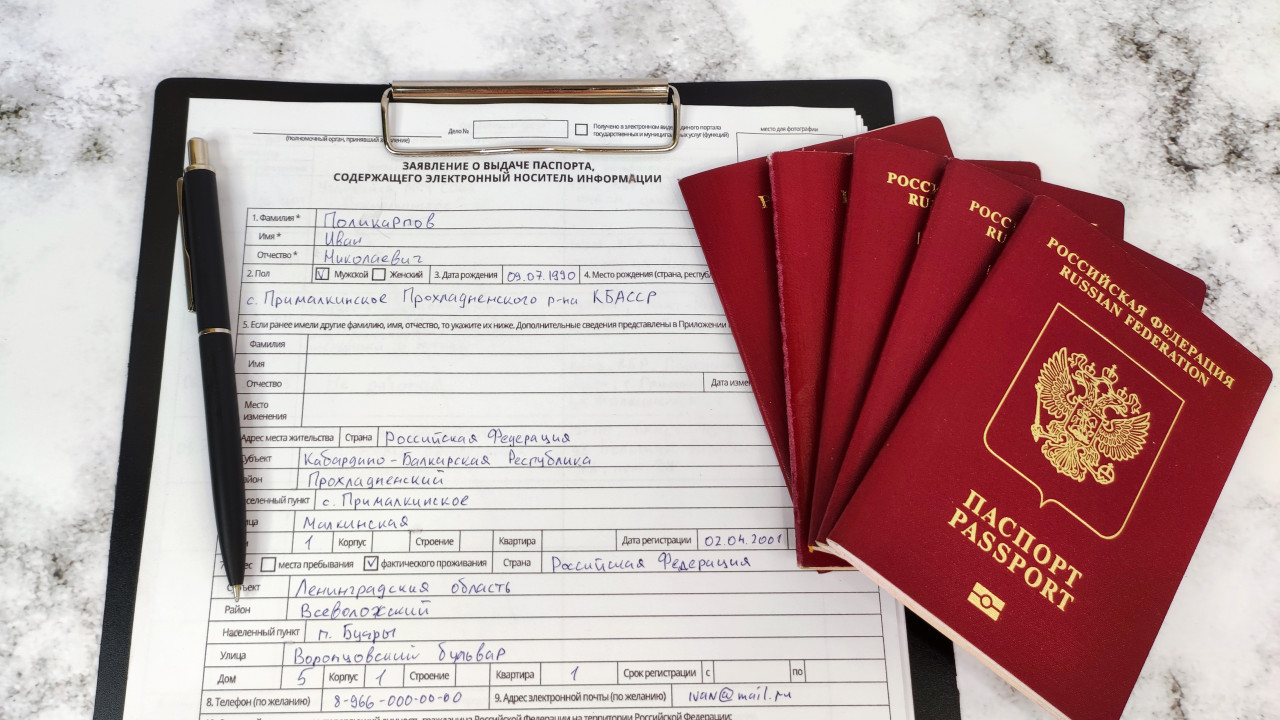 Дело №
Получено в электронном виде единого портала
(полномочный орган, принявший заявление)
государственных и муниципальных услуг (функций)
место для фотографии
ЗАЯВЛЕНИЕ О ВЫДАЧЕ ПАСПОРТА,
СОДЕРЖАЩЕГО ЭЛЕКТРОННЫЙ НОСИТЕЛЬ ИНФОРМАЦИИ
1. Фамилия * Поликарпов
Имя * Иван
Отчество * Николаевич
2. Пол V Мужской Женский 3. Дата рождения 09.07.1990 4. Место рождения (страна, республ
с. Прималкинское Прохладненского р-на КБАССР
5. Если ранее имели другие фамилию, имя, отчество, то укажите их ниже. Дополнительные сведения представлены в Приложении
Фамилия
Имя
Отчество Дата измен
Место
изменения
Адрес места жительства Страна Российская Федерация
субъект Кабардино-Балкарская Республика
йон Прохладненский
селенный пункт с. Прималкинское
ица Малкинская
1 Корпус Строение Квартира Дата регистрации 02.04.2001
ес места пребывания V фактического проживания Страна Российская Федерация
Субъект Ленинградская область
Район Всеволожский
Населенный пункт п. Бугры
Улица Воронцовский бульвар
Дом 5 Корпус 1 Строение Квартира 1 Срок регистрации с по
8. Телефон (по желанию) 8-966-000-00-00 9. Адрес электронной почты (по желанию) ivan@mail.ru
гражданина Российской Федерации на территории Российской Федерации:
РОСС
RU
РОСС
RU
РОССИЙСКАЯ ФЕДЕРАЦИЯ
RUSSIAN FEDERATION
ПАСПОРТ
PASSPORT